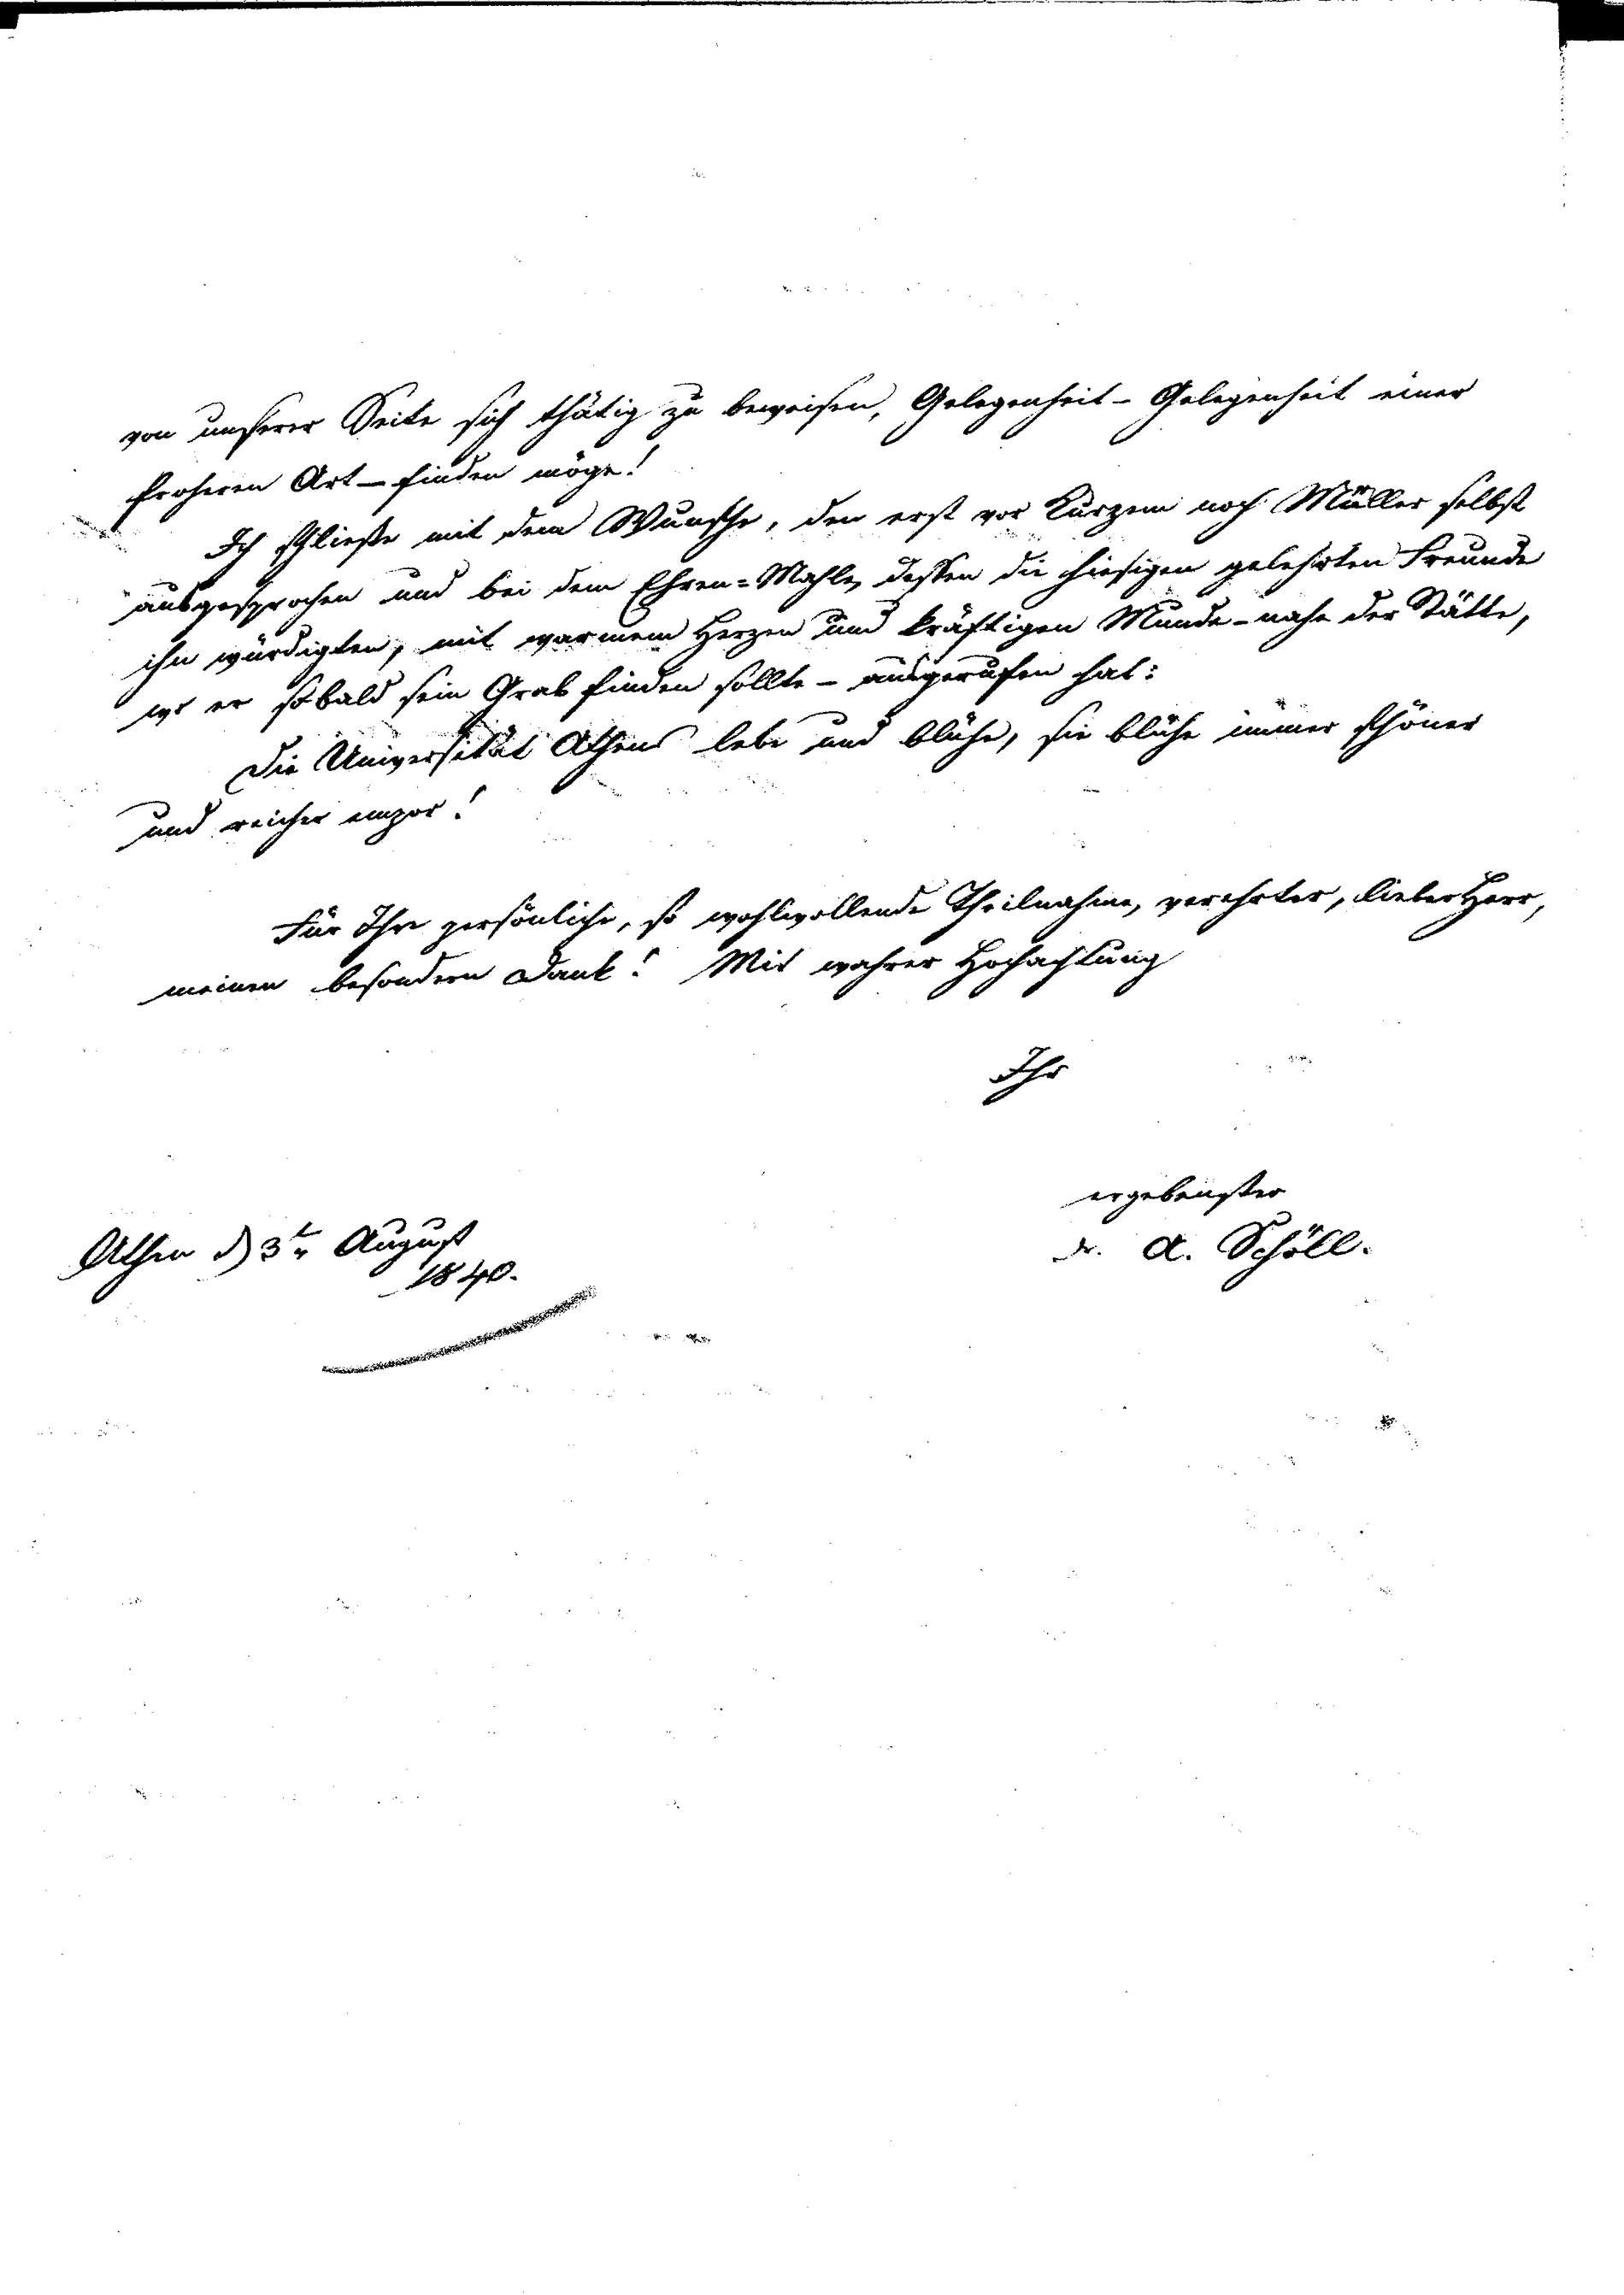 von unserer Seite sich thätig zu beweisen, Gelegenheit - Gelegenheit einer
froheren Art - finden möge!
Ich schließe mit dem Wunsche, den erst vor Kurzem noch Müller selbst
ausgesprochen und bei dem Ehren=Mahle, dessen die hiesigen gelehrten Freunde
ihn würdigten, mit warmem Herzen und kräftigen Munde - nahe der Stätte,
wo er sobald sein Grab finden sollte - ausgerufen hat:
Die Universität Athens lebe und blühe, sie blühe immer schöner
und reicher empor!
Für Ihre persönliche, so wohlwollende Theilnahme, verehrter, lieber Herr,
meinen besondern Dank! Mit wahrer Hochachtung
Ihr
ergebenster
Dr. A. Schöll.
Athen d 3t August
1840.